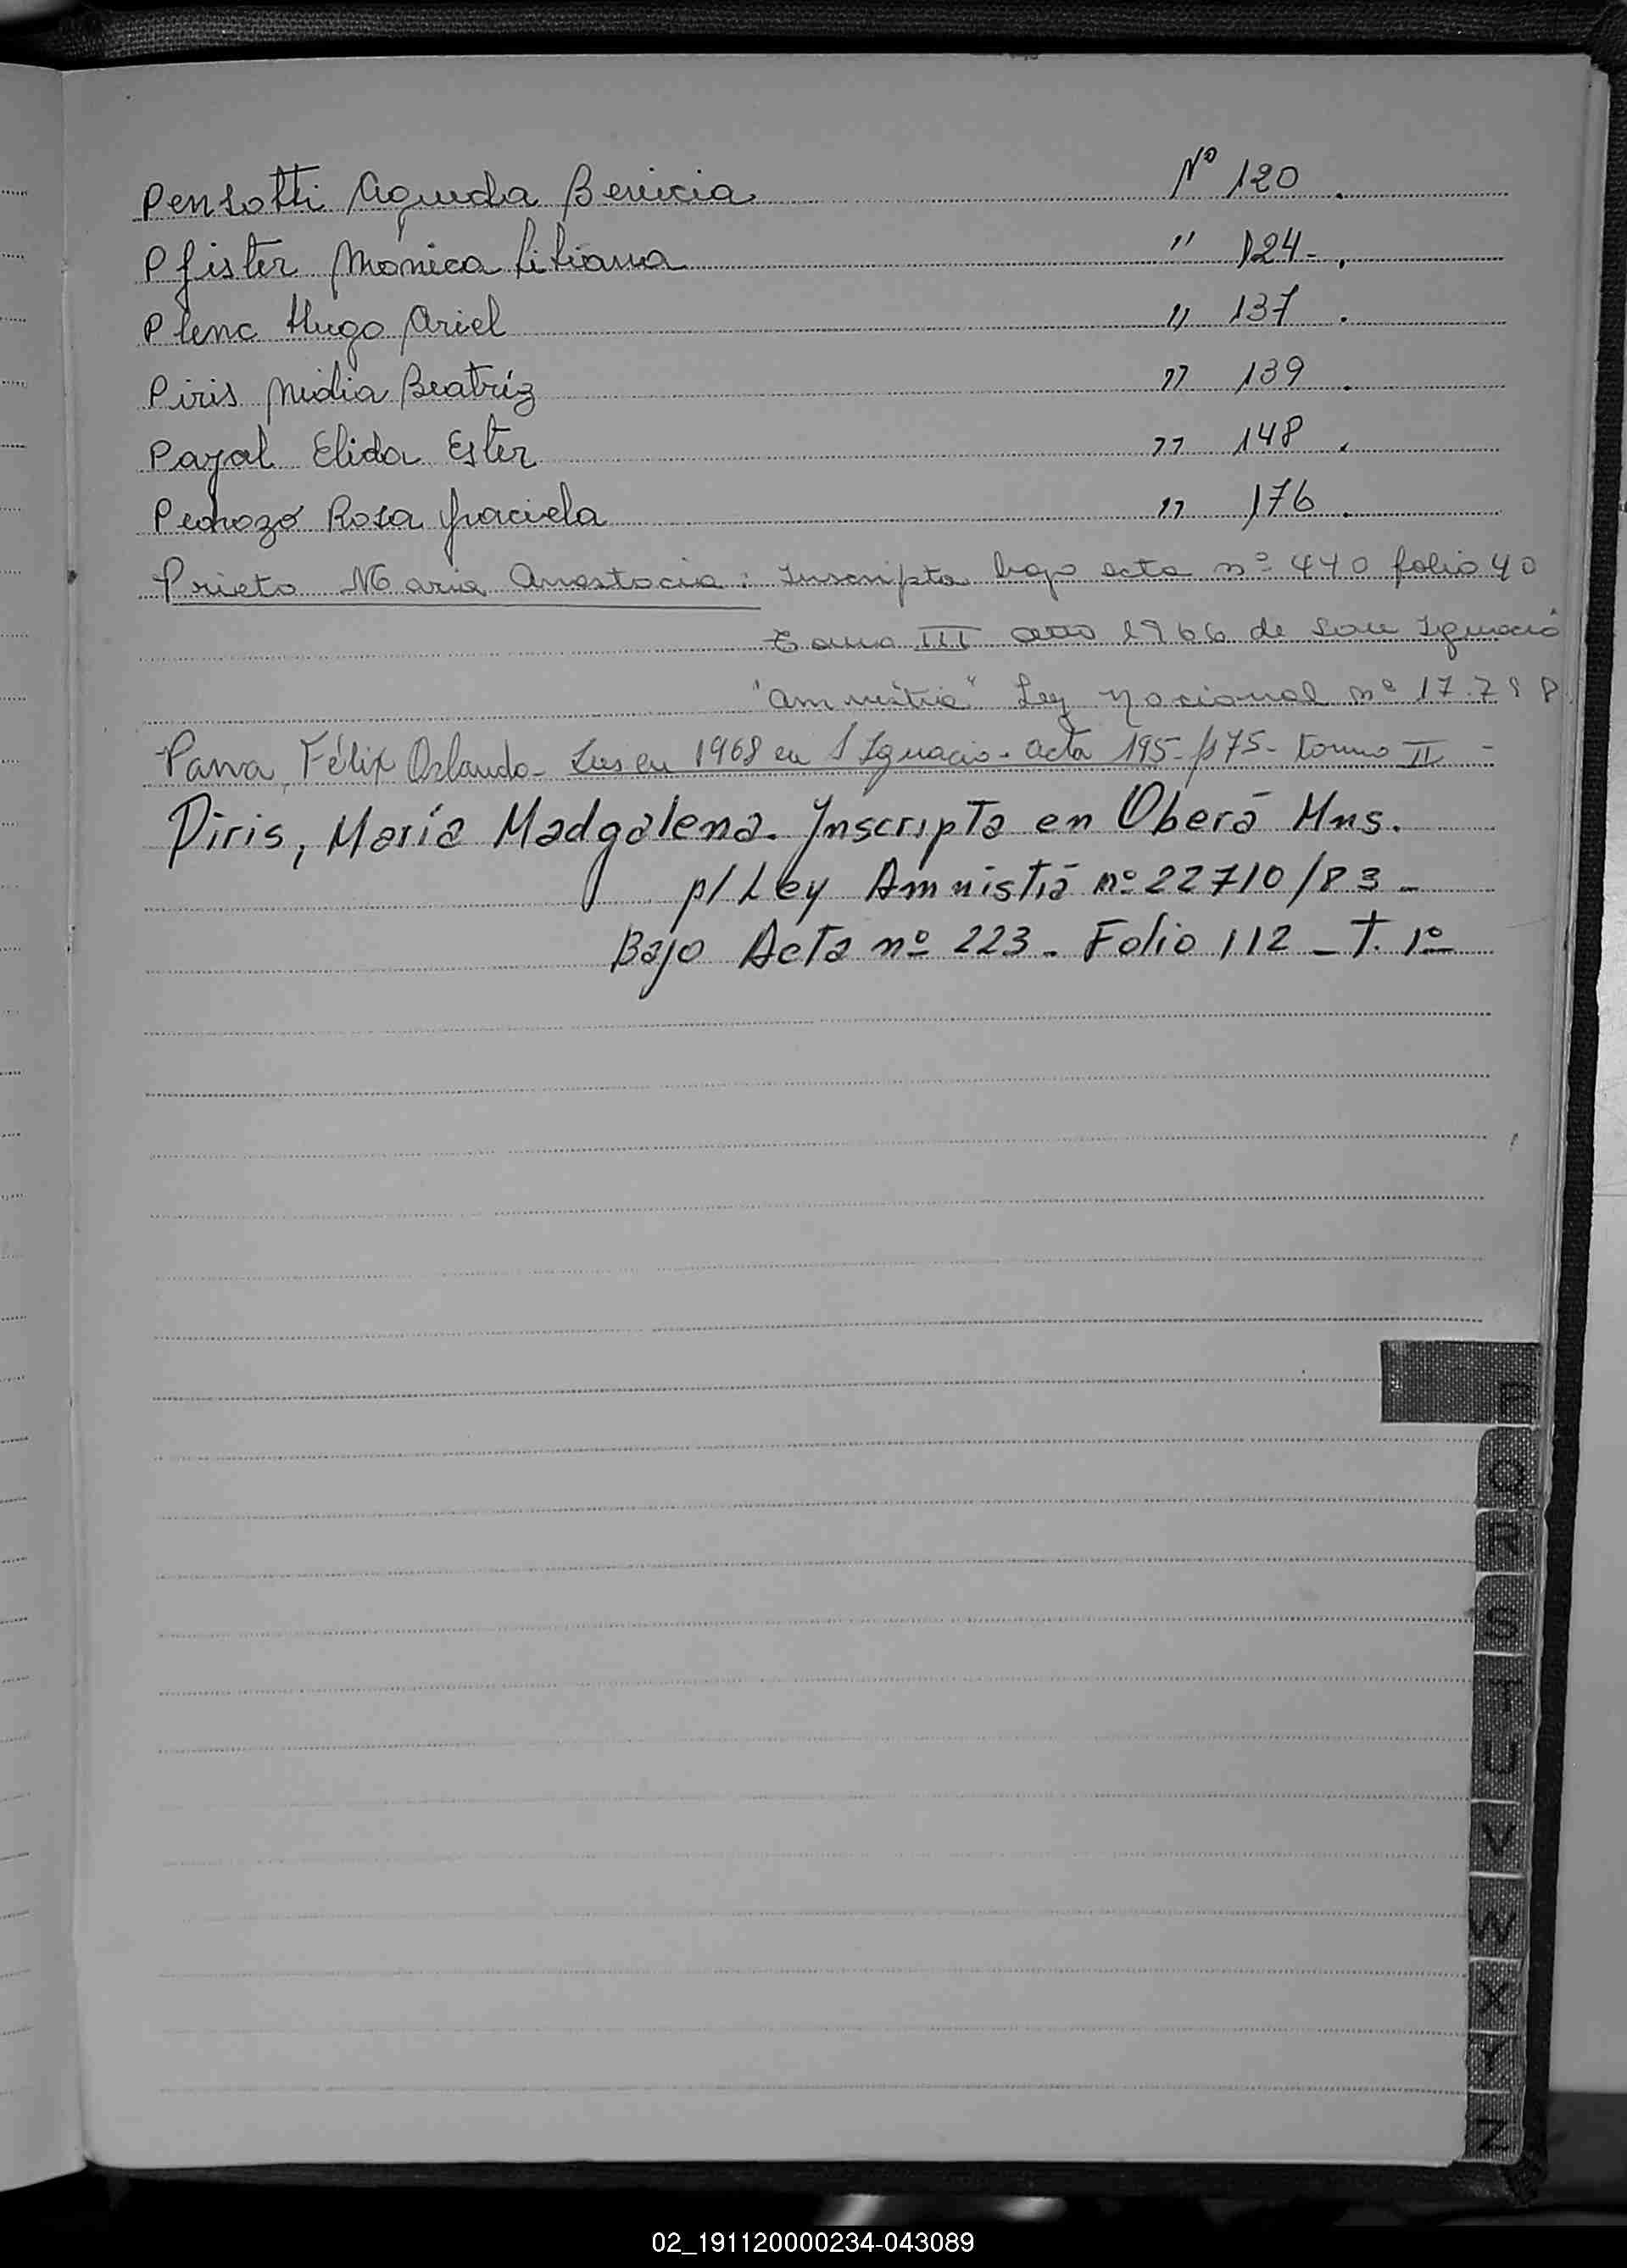 Pensotti Agueda Benicia Nº 120 .
Pfister Monica Liliana " 124 - .
Plenc Hugo Ariel " 137 .
Piris Nidia Beatríz " 139 .
Payal Elida Ester " 148 .
Pedrozo Rosa Graciela " 176 .
Prieto Maria Anastacia : Inscripta bajo acta nº 440 folio 40
Tomo III año 1966 de San Ignacio
"Amnistia" Ley Nacional nº 17.
Félix Orlando - Ins en 1968 en S Ignacio - acta 195 - fº 75 - tomo II -
Piris, María Madgalena. Inscripta en Oberá Mns.
p/ Ley Amnistiá nº 22710/83 -
Bajo Acta nº 223 - Folio 112 - T. 1º
P
Q
R
S
T
U
V
W
X
Y
Z
02_191120000234-043089